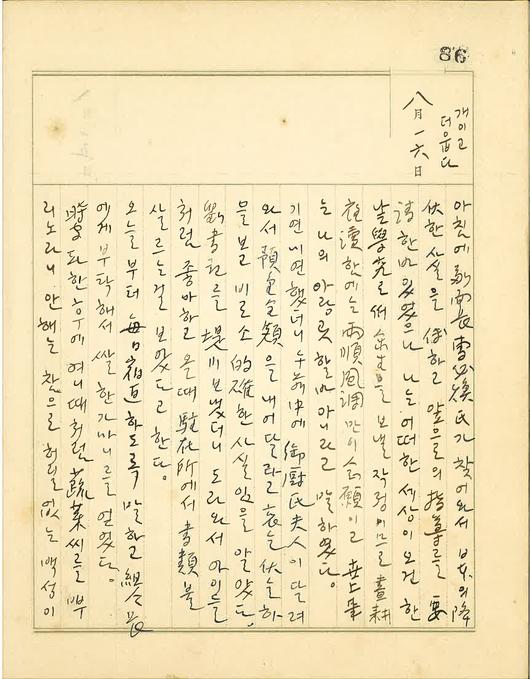 86
개이고
더웁다
八月一六日
아침에 副面長 曺必煥氏가 찾어와서 日本의 降
伏한 사실을 傳하고 앞으로의 指導를 要
請한바 있었으나 나는 어떠한 세상이 오건 한
낱 學究로서 余生을 보낼 작정이므로 晝耕
夜讀 한에는 雨順風調만이 念願이고 其上 事
는 나의 아랑곳 할바 아니라고 말하였다.
기연 미연 했더니 午前中에 御厨氏 夫人이 달려
와서 預金全額을 내어달라고 哀乞伏乞 하
믈 보고 비로소 的確한 사실임을 알았다.
처럼 좋아하고 올때 駐在所에서 書類 불
살르는걸 보았다고 한다.
오늘부터 每日 도록 말하고 組長
에게 부탁해서 쌀 한가마니를 얻었다.
한 후에 여니때처럼 蔬菜씨를 뿌
리노라니 안해는 참으로 허믈없는 백성이